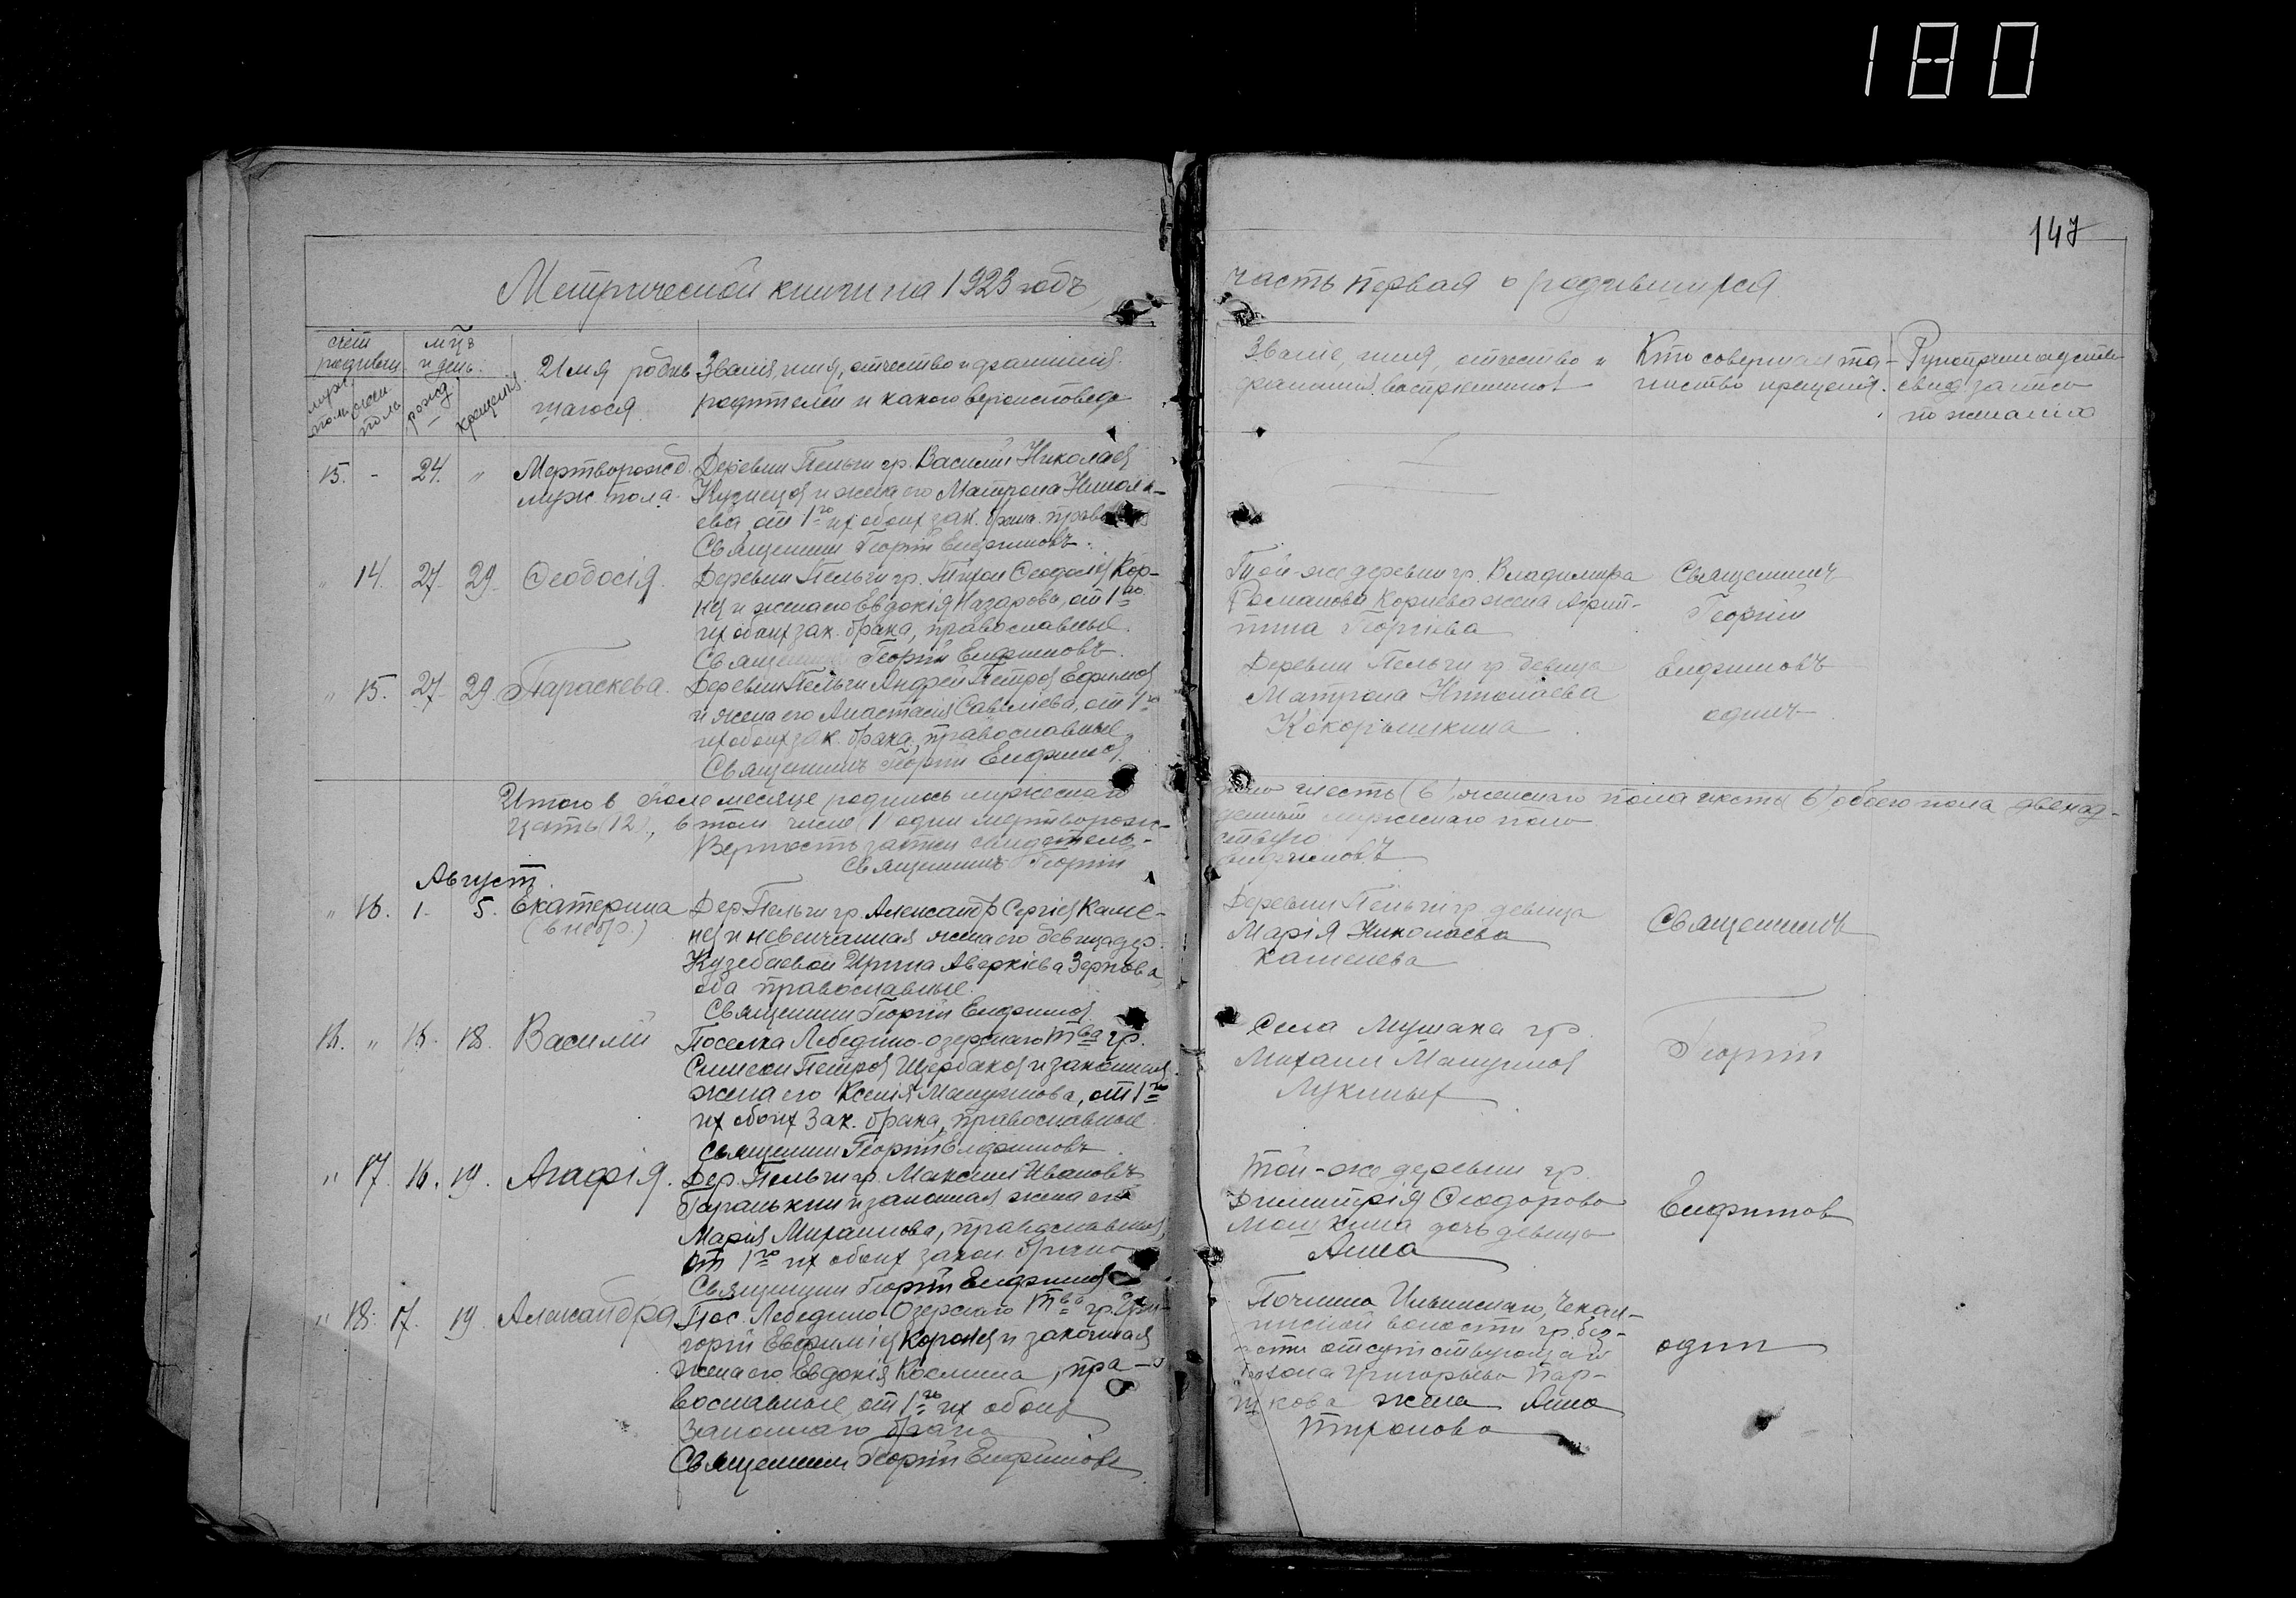 180
147
Метрической книги на 1923 годъ,
часть первая о родившихся
счет
родивш
муж. пол
жен. поль
мцъ
и день.
рожд
крещенія
Имя родив
шагося
Званія, имя, отчество и фамилія
родителей и какого вероисповед
Званіе, имя, отчество и
фамилия восприемников
Кто совершал та-
инство крещенія.
Рукоприкладства
свид записи
по желанію
15. - 24. „
Мертворожд.
муж. пола.
Деревни Пельги гр. Василий Николаев
Кузнецов и жена его Матрона Никола-
ева от 1го их обоих зак. брака. право
Священник Георгій Елифимовъ.
„ 14. 27. 29. Феодосія.
Деревни Пельги гр. Тихон Феодосіев Кор-
нев и жена его Евдокія Назарова, от 1го
их обоих зак. брака, православные.
Священник Георгій Елифимовъ.
Той-же деревни гр. Владимира
Романова Корнева жена Агрип-
пина Георгіева
Священникъ
Георгій
„ 15. 27. 29. Параскева.
Деревни Пельги Андрей Петров Ефимов
и жена его Анастасия Савельева, от 1го
их обоих зак. брака, православные.
Священникъ Георгій Елифимов.
Деревни Пельги гр девица
Матрона Николаева
Кокорышкина
Елифимовъ
одинъ
Итого в Іюле месяце родилось мужескаго
пола шесть (6), женскаго пола шесть (6) обоего пола двенад-
цать (12), в том числе (1 один мертворож-
денный мужскаго пола
Верность записи свидетель-
ствую
Священникъ Георгій
Елифимовъ
Август.
„ 16. 1. 5. Екатерина
(внебр.)
Дер Пельги гр. Александр Сергіев Каме-
нев и невенчанная жена его девица дер.
Кузебаевой Ирина Аверкіева Зернова
оба православные.
Священник Георгій Елифимов
Деревни Пельги гр девица
Марія Николаева
Каменева
Священникъ
16. „ 15. 18. Василій
Поселка Лебедино-озерскаго Тва гр.
Симеон Петров Щербаков и законная
жена его Ксенія Манужлова, от 1го
их обоих зак. брака, православные.
священник Георгій Елифимовъ
Села Мушака гр
Михаил
Лукиных
Георгій
„ 17. 16. 19. Агафія.
Дер. Пельги гр. Максим Ивановъ
и законная жена его
Марія Михаилова, православныя,
от 1го их обоих закон. брака
Священник Георгій Елифимов
Той-же деревни гр.
Димитрія Феодорова
дочь девица
Анна
Елифимов
„ 18. 17. 19. Александра
Пос. Лебедино-Озерскаго Тва гр. Гри-
горій Евфиміев и законная
жена его Евдокія Космина, пра-
вославные, от 1го их обоих
Законнаго брака
Священник Георгій Елифимовъ
Починка Ильинскаго,
волости гр. без-
отсутствующаго
Григорьева Пар-
шкова жена Анна
Тихонова
один